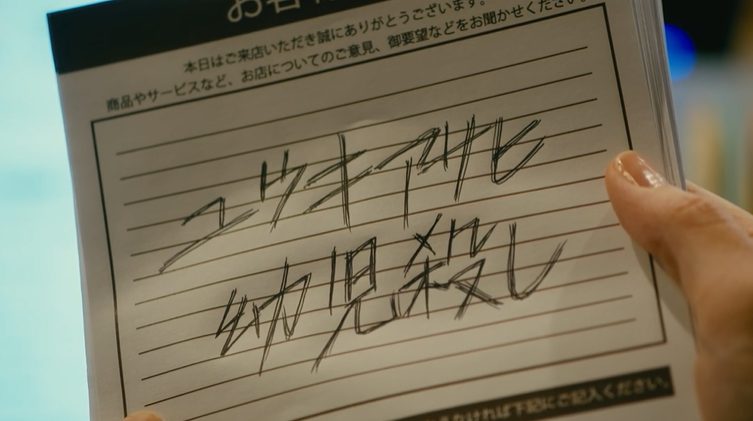 お客
本日はご来店いただき誠にありがとうございます。
商品やサービスなど、お店についてのご意見、御要望などをお聞かせください。
ユウキアサヒ
幼児殺し
なければ下記にご記入ください。